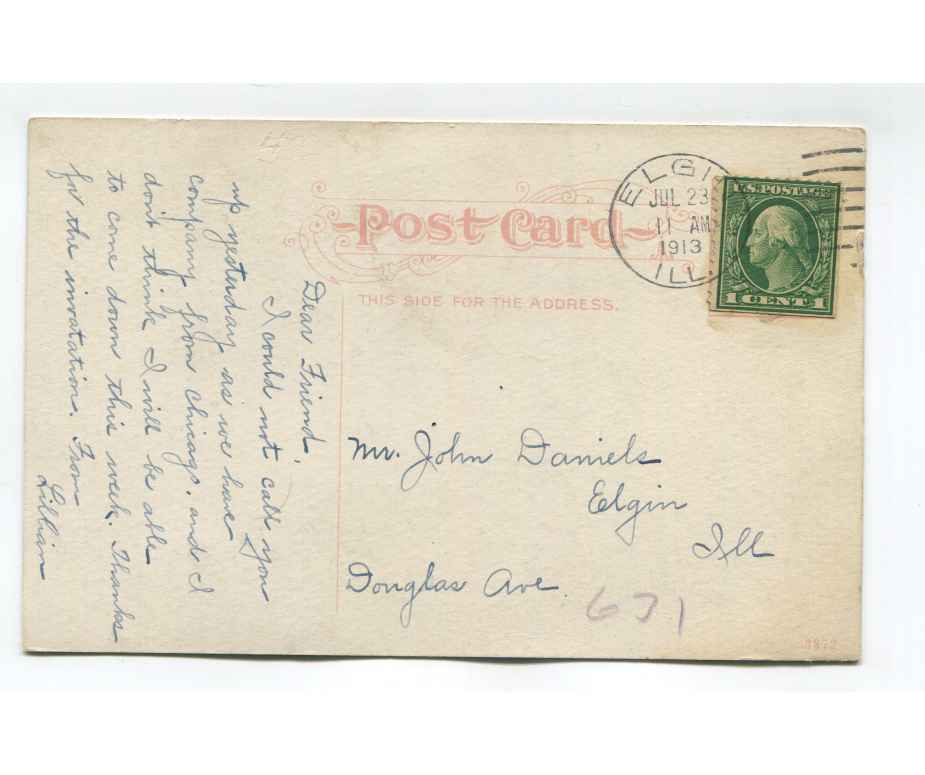 Post Card
THIS SIDE FOR THE ADDRESS.
ELGIN
JUL 23
11 AM
1913
ILL.
U.S. POSTAGE
1 CENT 1
Dear Friend,
I could not call you
up yesterday as we have
company from Chicago. and I
don't think I will be able
to come down this week. Thanks
for the invatation. From
Lillian
Mr. John Daniels
Elgin
Ill
Douglas Ave.
671